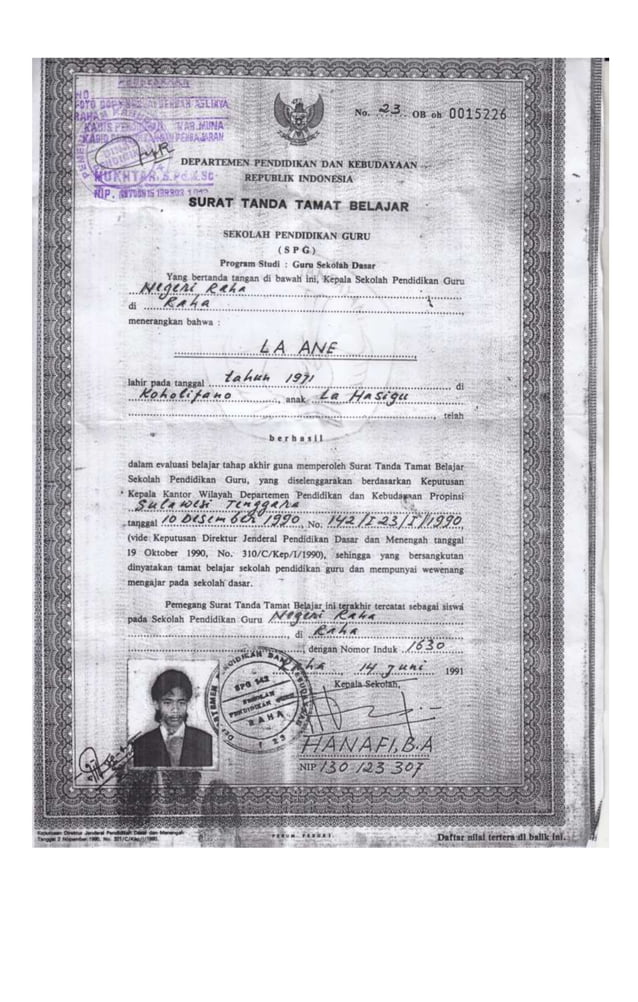 No. 23 OB oh 0015226
KABID PEMBELAJARAN
MUKHTAR, S.Pd, M.Sc
NIP.
DEPARTEMEN PENDIDIKAN DAN KEBUDAYAAN
REPUBLIK INDONESIA
SURAT TANDA TAMAT BELAJAR
SEKOLAH PENDIDIKAN GURU
( S P G )
Program Studi : Guru Sekolah Dasar
Yang bertanda tangan di bawah ini, Kepala Sekolah Pendidikan Guru
Negeri Raha
di Raha
menerangkan bahwa :
LA ANE
lahir pada tanggal tahun 1971 di
Koholifano, anak La Hasigu
, telah
berhasil
dalam evaluasi belajar tahap akhir guna memperoleh Surat Tanda Tamat Belajar
Sekolah Pendidikan Guru, yang diselenggarakan berdasarkan Keputusan
Kepala Kantor Wilayah Departemen Pendidikan dan Kebudayaan Propinsi
Sulawesi Tenggara
tanggal 10 Desember 1990 No. 142/I23/I/1990
(vide Keputusan Direktur Jenderal Pendidikan Dasar dan Menengah tanggal
19 Oktober 1990, No. 310/C/Kep/I/1990), sehingga yang bersangkutan
dinyatakan tamat belajar sekolah pendidikan guru dan mempunyai wewenang
mengajar pada sekolah dasar.
Pemegang Surat Tanda Tamat Belajar ini terakhir tercatat sebagai siswa
pada Sekolah Pendidikan Guru Negeri Raha
, di Raha
, dengan Nomor Induk 1630
Raha, 14 Juni 1991
Kepala Sekolah,
SPG 142
SEKOLAH
PENDIDIKAN GURU
RAHA
HANAFI, B.A
NIP 130 123 307
Keputusan Direktur Jenderal Pendidikan Dasar dan Menengah
Tanggal 2 Nopember 1990, No. 321/C/Kep/I/1990.
PERUM PERURI
Daftar nilai tertera di balik ini.